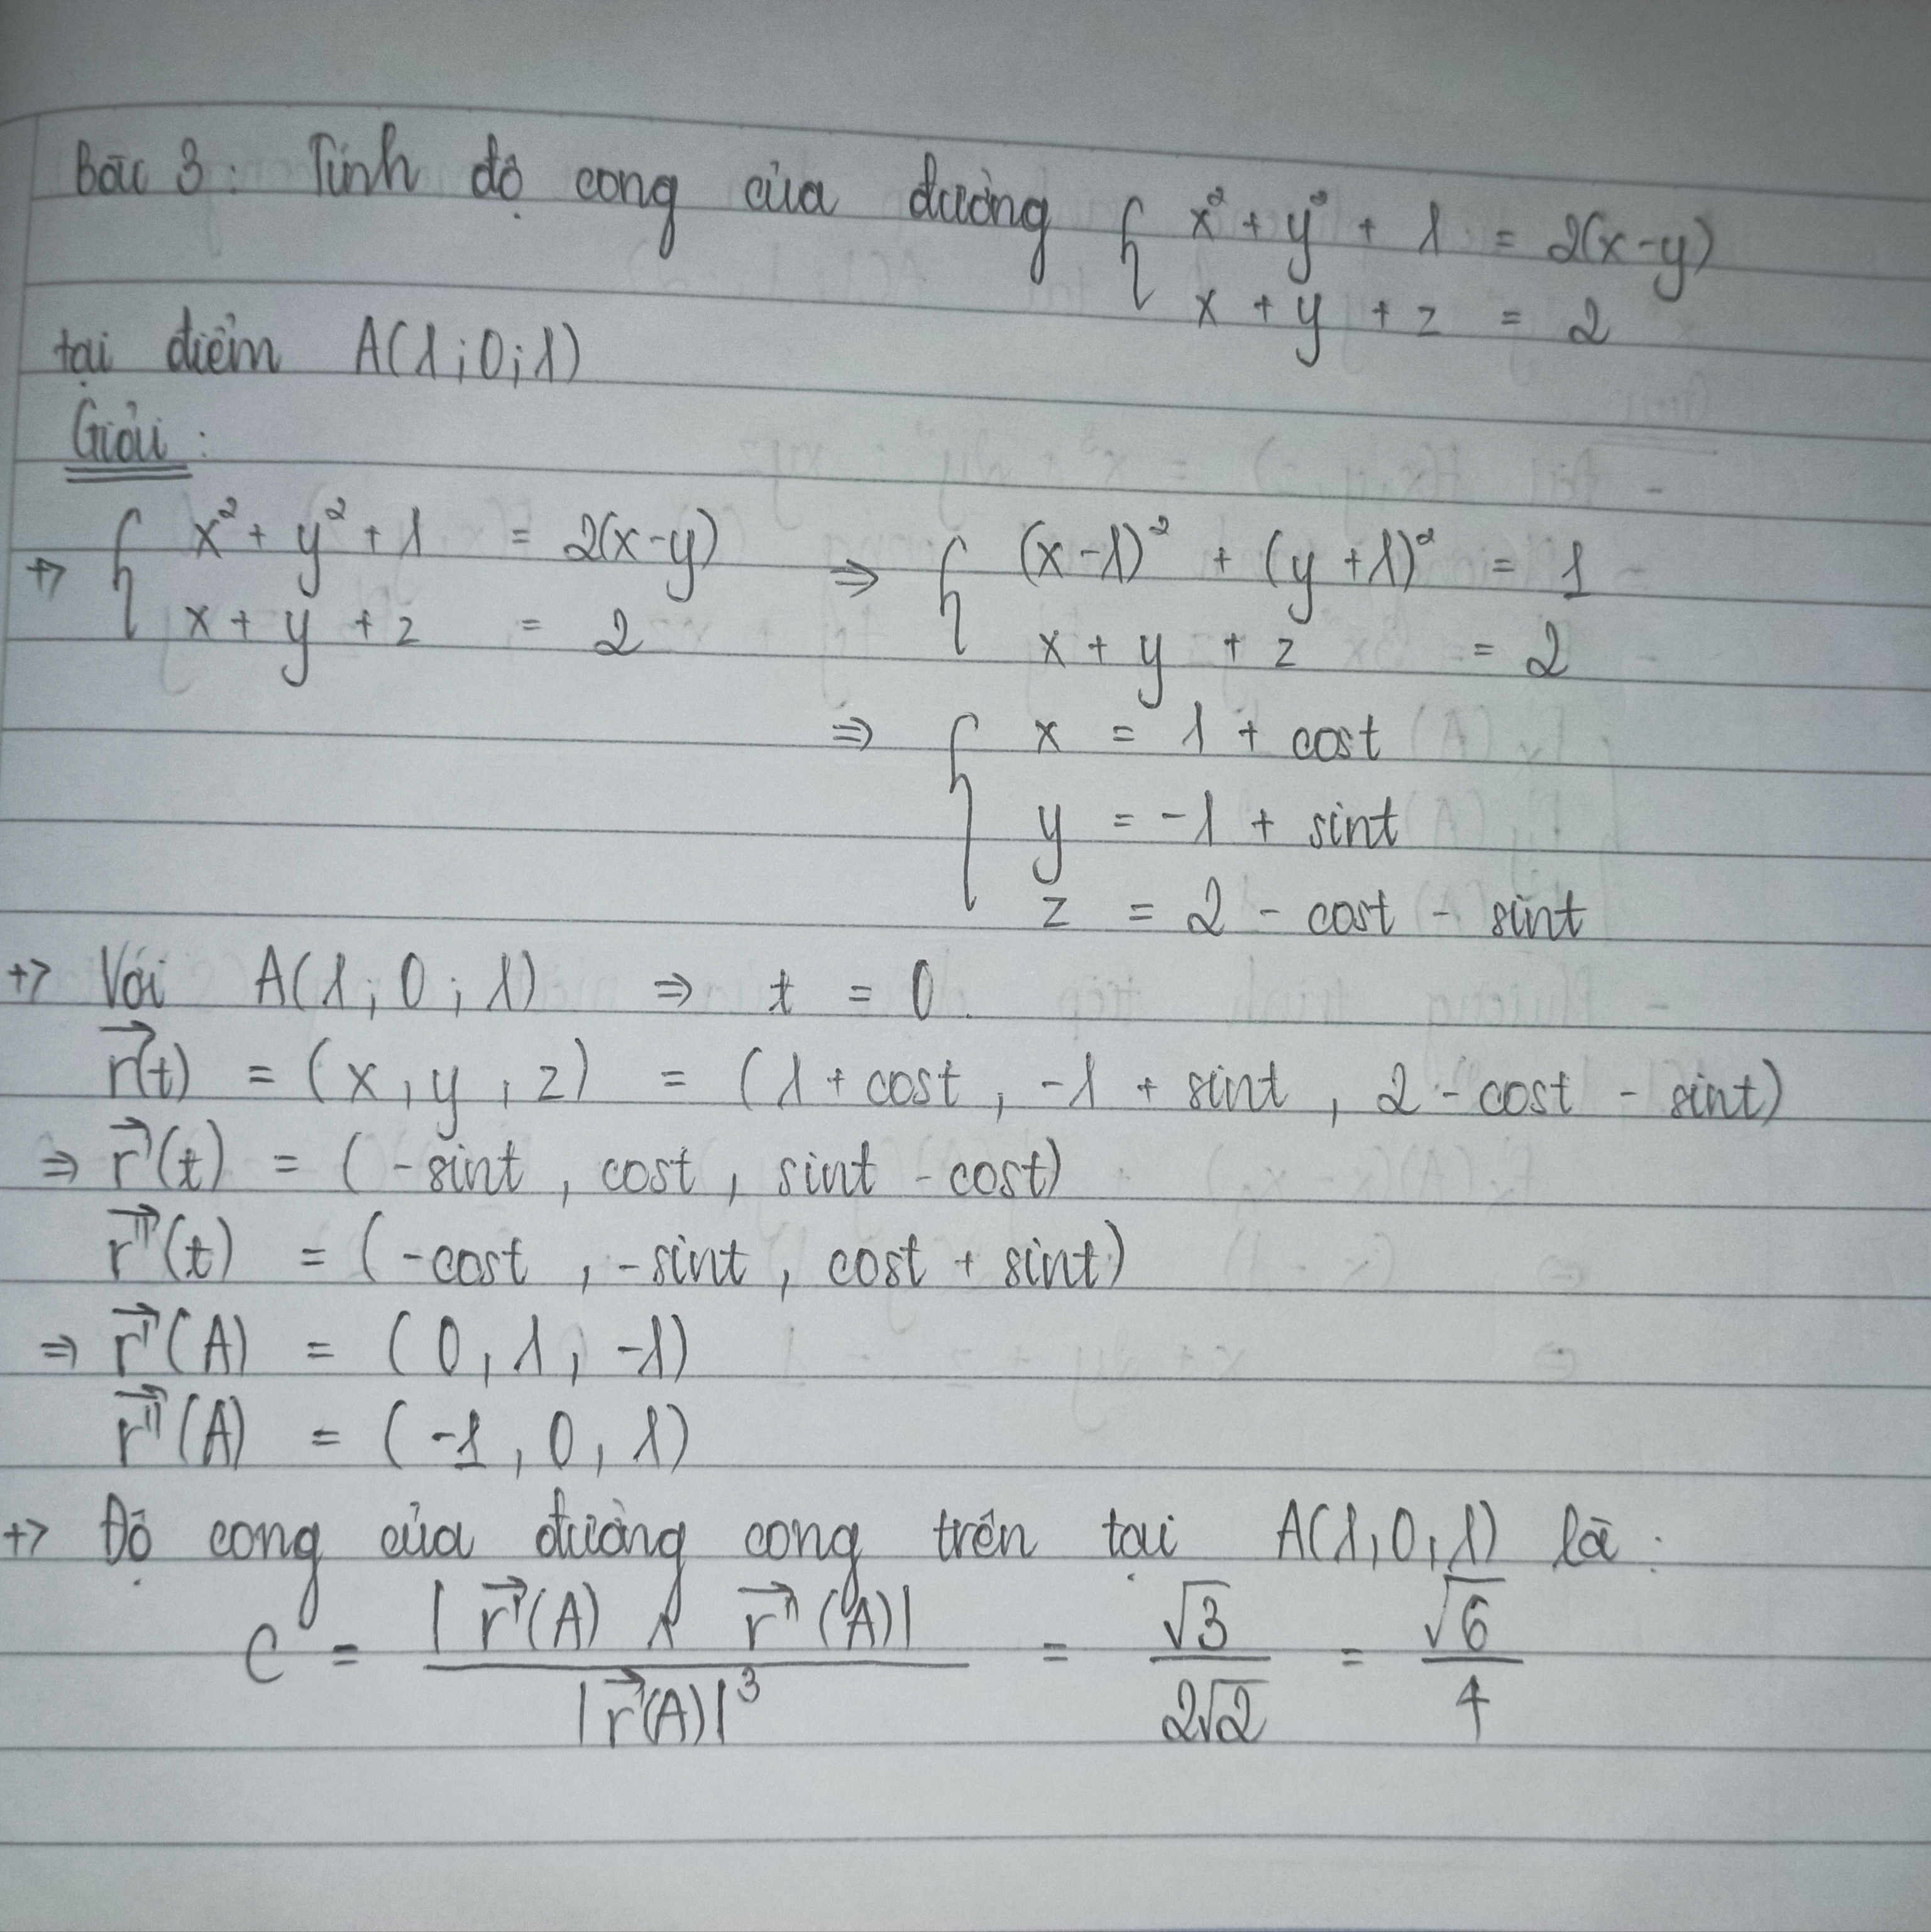 Bài 3: Tính độ cong của đường { x² + y² + 1 = 2(x-y)
x + y + z = 2
tại điểm A(1;0;1)
Giải:
+> { x² + y² + 1 = 2(x-y) ⇒ { (x-1)² + (y+1)² = 1
x + y + z = 2 x + y + z = 2
⇒ { x = 1 + cost
y = -1 + sint
z = 2 - cost - sint
+> Với A(1;0;1) ⇒ t = 0.
r⃗(t) = (x, y, z) = (1 + cost, -1 + sint, 2 - cost - sint)
⇒ r⃗'(t) = (-sint, cost, sint - cost)
r⃗''(t) = (-cost, -sint, cost + sint)
⇒ r⃗'(A) = (0, 1, -1)
r⃗''(A) = (-1, 0, 1)
+> Độ cong của đường cong trên tại A(1,0,1) là:
C = |r⃗'(A) ∧ r⃗''(A)| / |r⃗'(A)|³ = √3 / 2√2 = √6 / 4